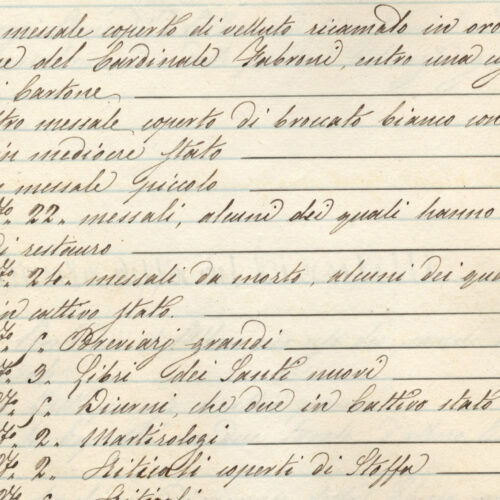 messale coperto di velluto ricamato in oro
del Cardinale Fabroni, entro una
Cartone
messale coperto di broccato bianco con
in mediocre stato
messale piccolo
22. messali, alcuni dei quali hanno
di restauro
24. messali da morto, alcuni dei
in cattivo stato.
Breviarj grandi
3. Libri dei Santi nuovi
Diurni, che due in Cattivo stato
2. Martirologi
2. Rituali coperti di Stoffa
Rituali